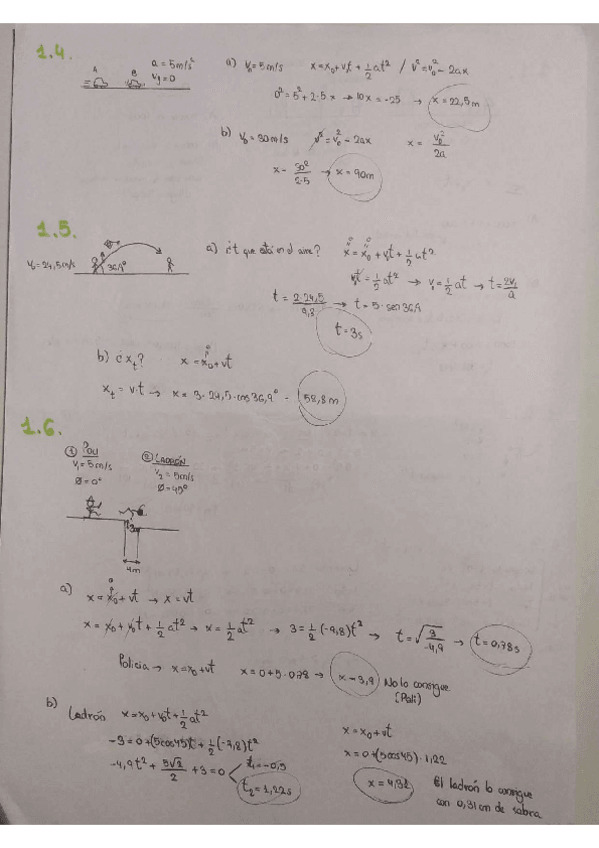 1.4.
A B a = 5m/s²
Vf = 0
a) V₀ = 5m/s x = x₀ + vt + 1/2 at² / v² = v₀² - 2ax
0² = 5² + 2·5 x → 10x = -25 → x = 22,5m
b) V₀ = 30m/s v² = v₀² - 2ax x = V₀²/2a
x - 30²/2·5 → x = 90m
1.5.
V₀ = 24,5m/s 36,9°
a) ¿t que está en el aire? x = x₀ + vt + 1/2 at²
vt = 1/2 at² → v = 1/2 at → t = 2v/a
t = 2·24,5/9,8 → t = 5·sen 36,9
t = 3s
b) ¿xt? x = x₀ + vt
xt = v·t → x = 3·24,5·cos 36,9° = 58,8m
1.6.
① Poli
V₁ = 5m/s
Ø = 0°
② LADRÓN
V₂ = 5m/s
Ø = 45°
3m
4m
a) x = x₀ + vt → x = vt
x = x₀ + v₀t + 1/2 at² → x = 1/2 at² → 3 = 1/2 (-9,8)t² → t = √3/-4,9 → t = 0,78s
Policía → x = x₀ + vt x = 0 + 5·078 → x - 3,9 No lo consigue
(Poli)
b) Ladrón x = x₀ + v₀t + 1/2 at²
-3 = 0 + (5cos45)t + 1/2 (-9,8)t²
-4,9t² + 5√2/2 + 3 = 0 t₁ = -0,5
t₂ = 1,22s
x = x₀ + vt
x = 0 + (5cos45)·1,22
x = 4,32 El ladrón lo consigue
con 0,31 cm de sobra